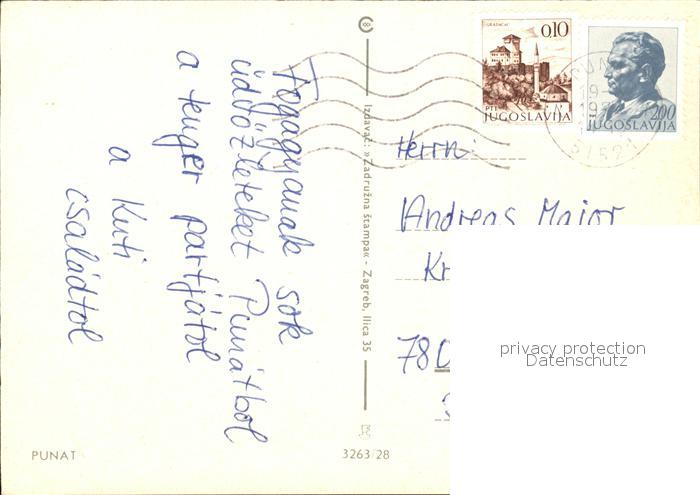 Fogagyanak sok
üdvözleteket Punatbol
a tenger partjátol
a Kuti
családtol
PUNAT
3263/28
Izdavač: »Zadružna štampa« - Zagreb, Ilica 35
GRADAČAC
0,10
PTT
JUGOSLAVIJA
2,00
JUGOSLAVIJA
51521
Herrn
Andreas Major
Kr
780
privacy protection
Datenschutz